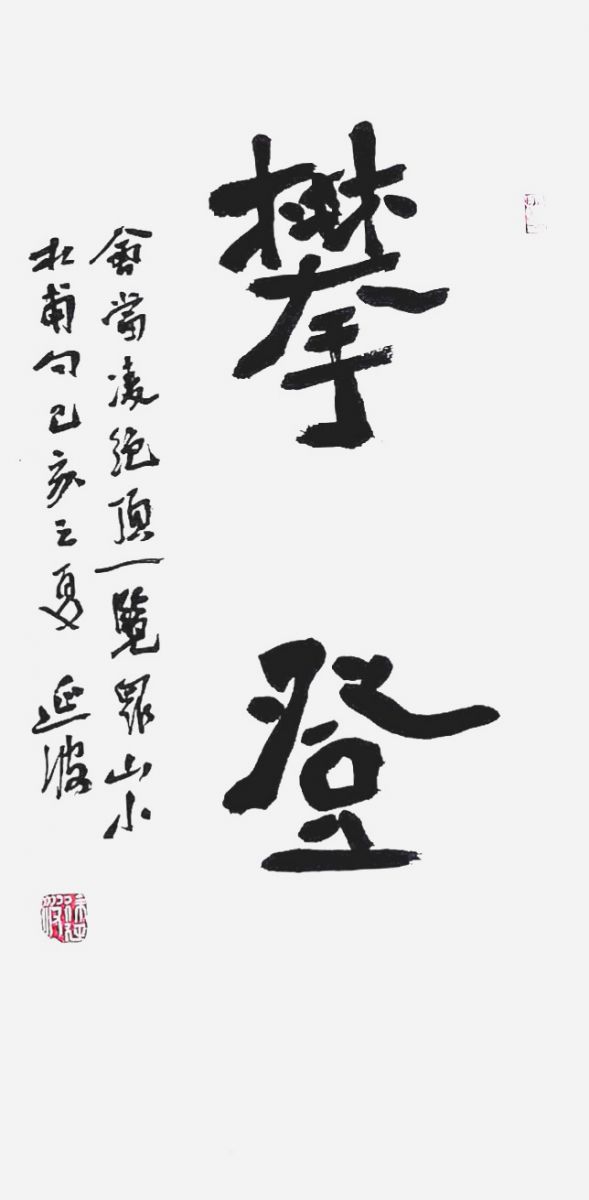 攀登
會當凌绝頂一覽眾山小
杜甫句己亥之夏 延波
延波